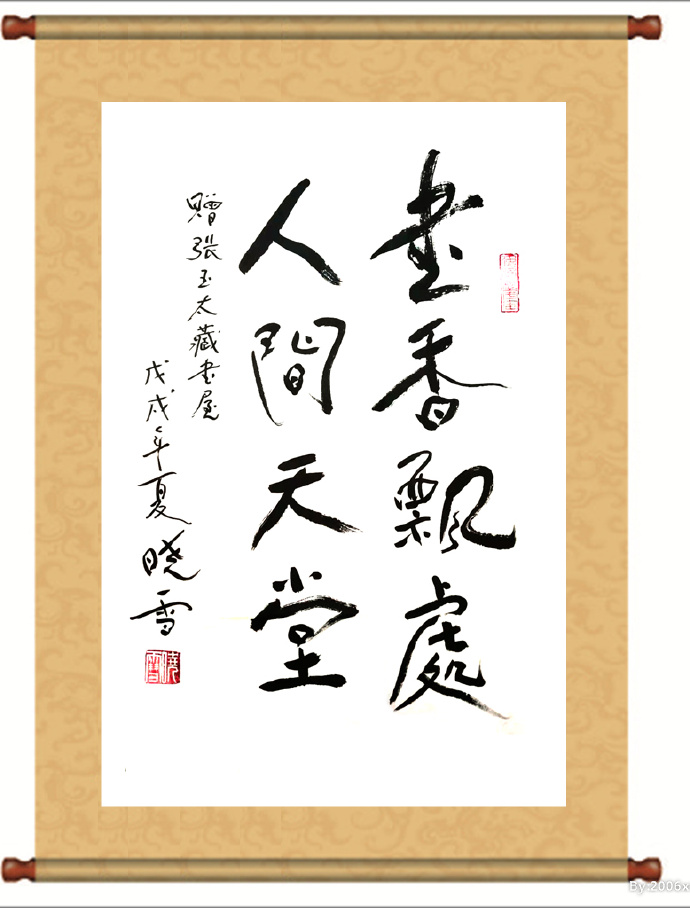 書香飄處
人間天堂
贈張玉太藏書屋
戊戌年夏
曉雪
By:2006x